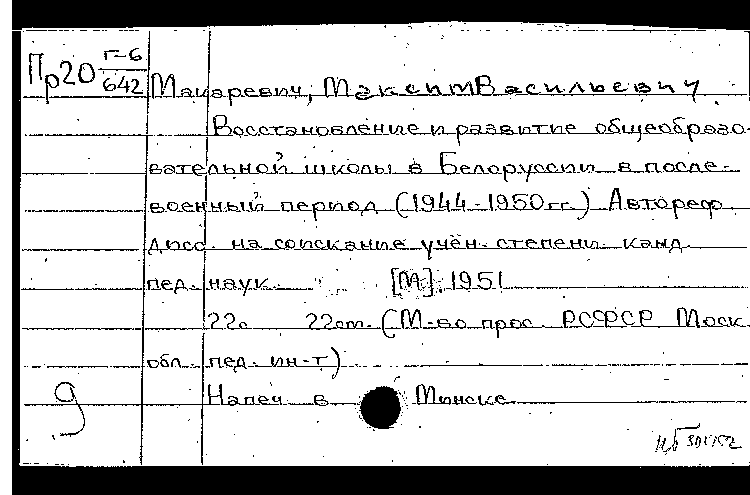 Пр20 Г-6/642
Макаревич, Максим Васильевич
Восстановление и развитие общеобразо-
вательной школы в Белоруссии в после-
военный период (1944-1950гг.) Автореф.
дисс. на соискание учён. степени канд.
пед. наук. [М]. 1951
22с. 22см. (М-во прос. РСФСР Моск.
обл. пед. ин-т)
Напеч. в Минске
9